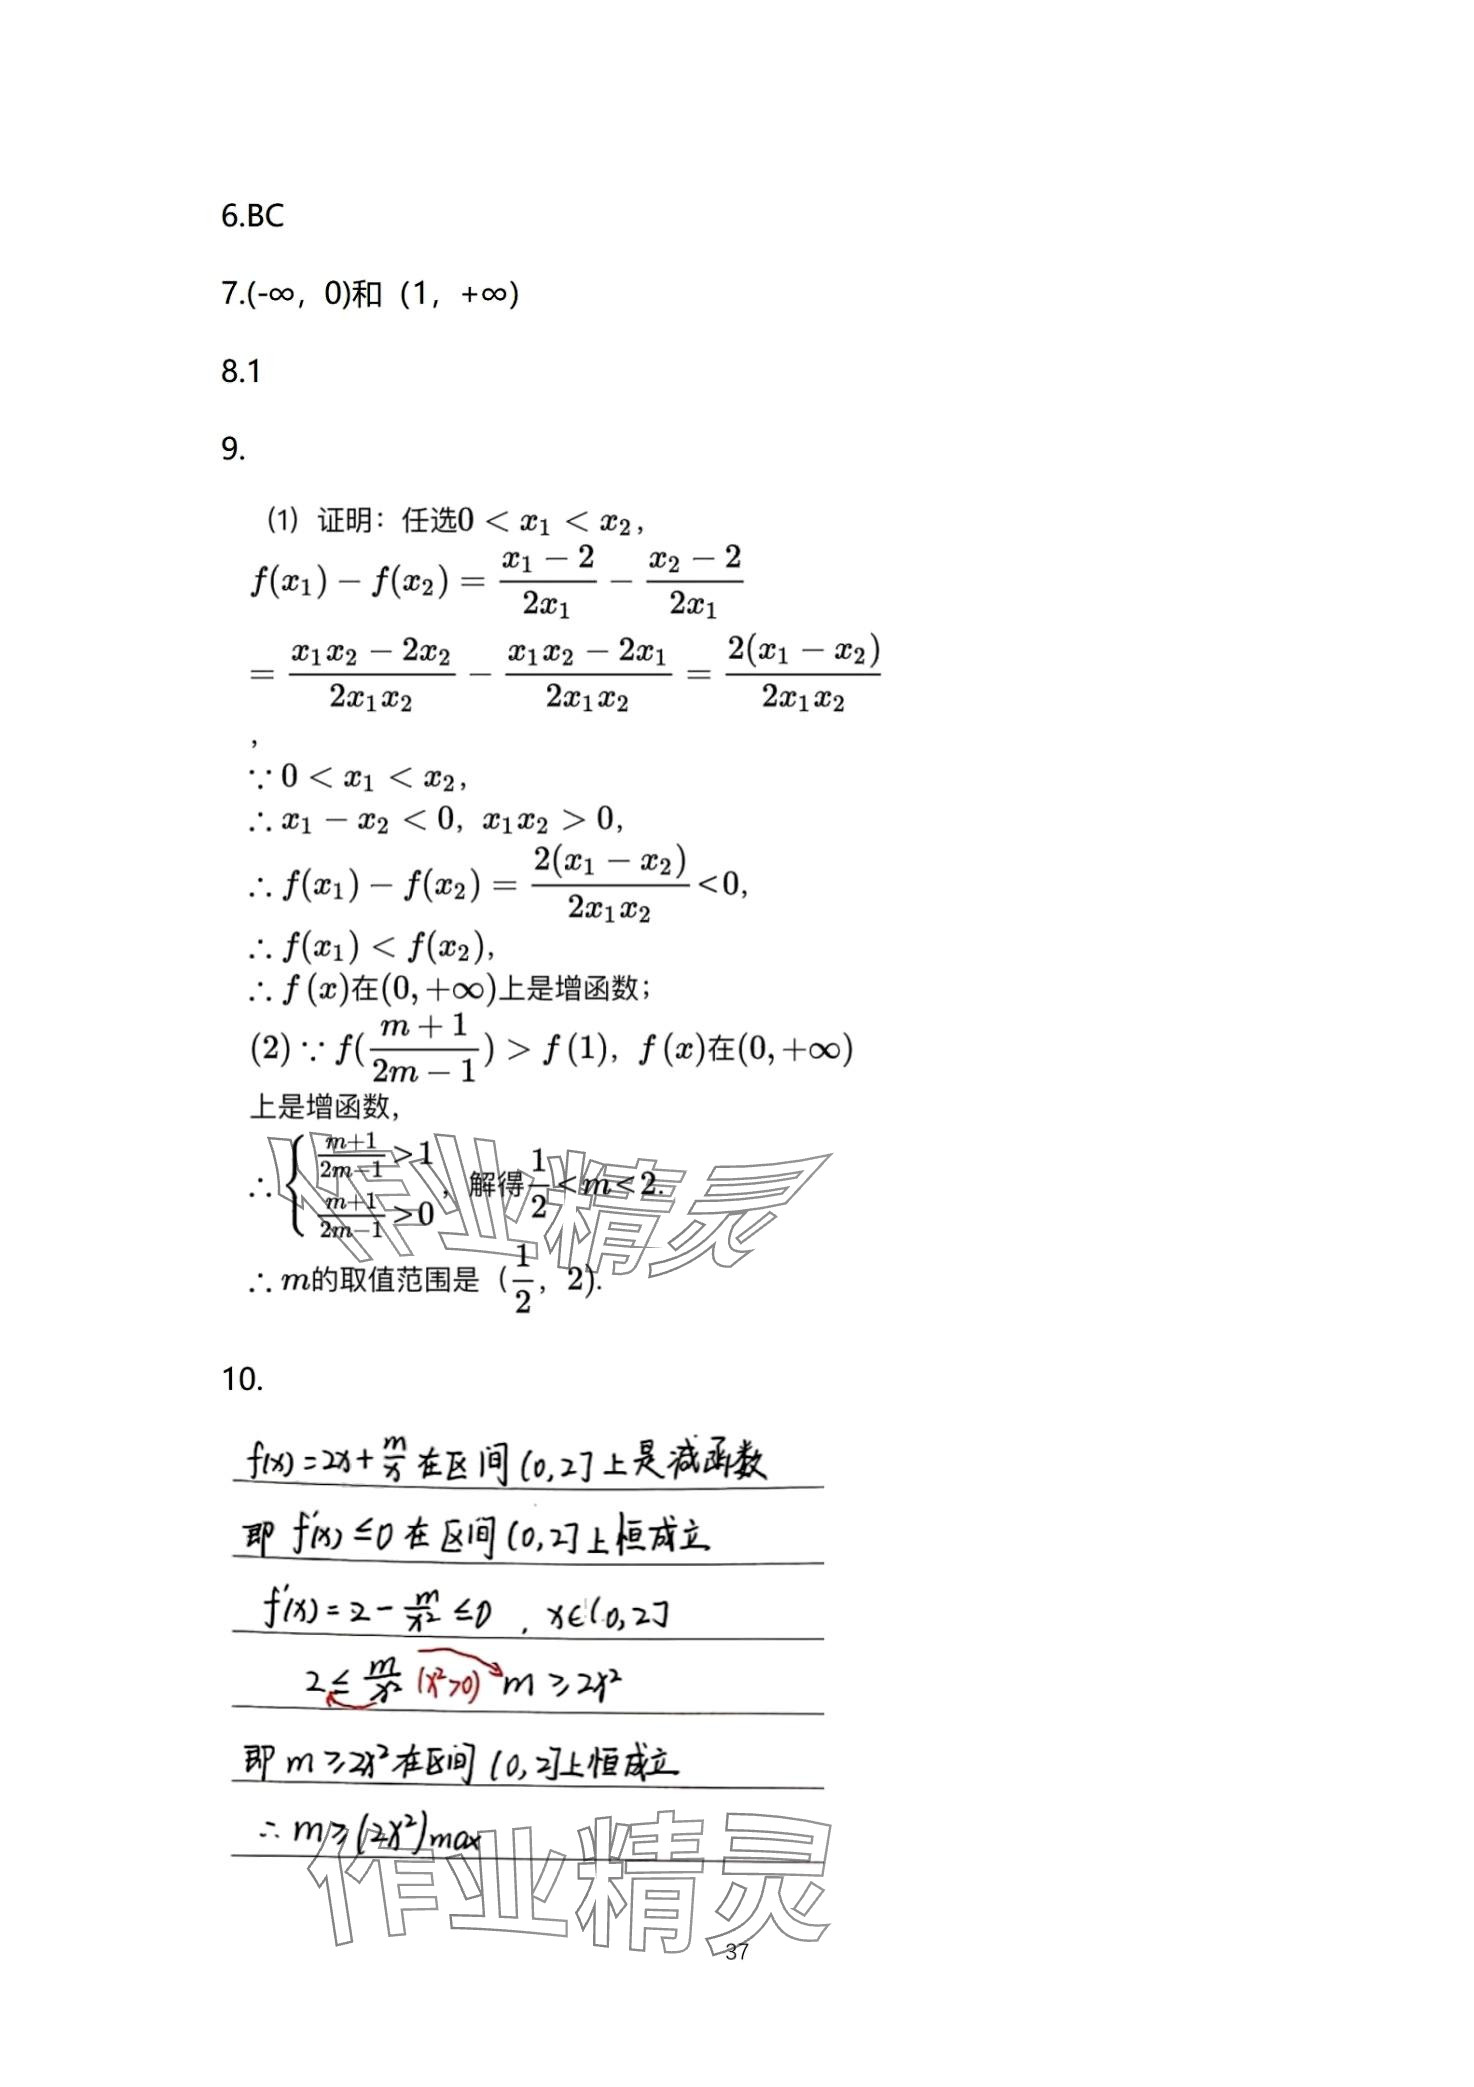 6.BC
7.(-∞，0)和（1，+∞）
8.1
9.
（1）证明：任选0 < x₁ < x₂，
f(x₁) − f(x₂) = (x₁ − 2)/(2x₁) − (x₂ − 2)/(2x₁)
= (x₁x₂ − 2x₂)/(2x₁x₂) − (x₁x₂ − 2x₁)/(2x₁x₂) = 2(x₁ − x₂)/(2x₁x₂)
，
∵ 0 < x₁ < x₂，
∴ x₁ − x₂ < 0，x₁x₂ > 0，
∴ f(x₁) − f(x₂) = 2(x₁ − x₂)/(2x₁x₂) <0，
∴ f(x₁) < f(x₂)，
∴ f (x)在(0, +∞)上是增函数；
(2) ∵ f((m + 1)/(2m − 1)) > f (1)，f (x)在(0, +∞)
上是增函数，
∴ { (m+1)/(2m−1) >1
(m+1)/(2m−1) >0 ，解得 1/2 <m<2.
∴ m的取值范围是（1/2，2).
10.
f(x)=2x+m/x 在区间(0,2]上是减函数
即 f'(x) ≤0 在区间(0,2]上恒成立
f'(x)=2−m/x² ≤0 , x∈(0,2]
2≤ m/x² (x²>0) m ≥2x²
即 m ≥2x² 在区间(0,2]上恒成立
∴ m≥(2x²)max
作业精灵
作业精灵
37